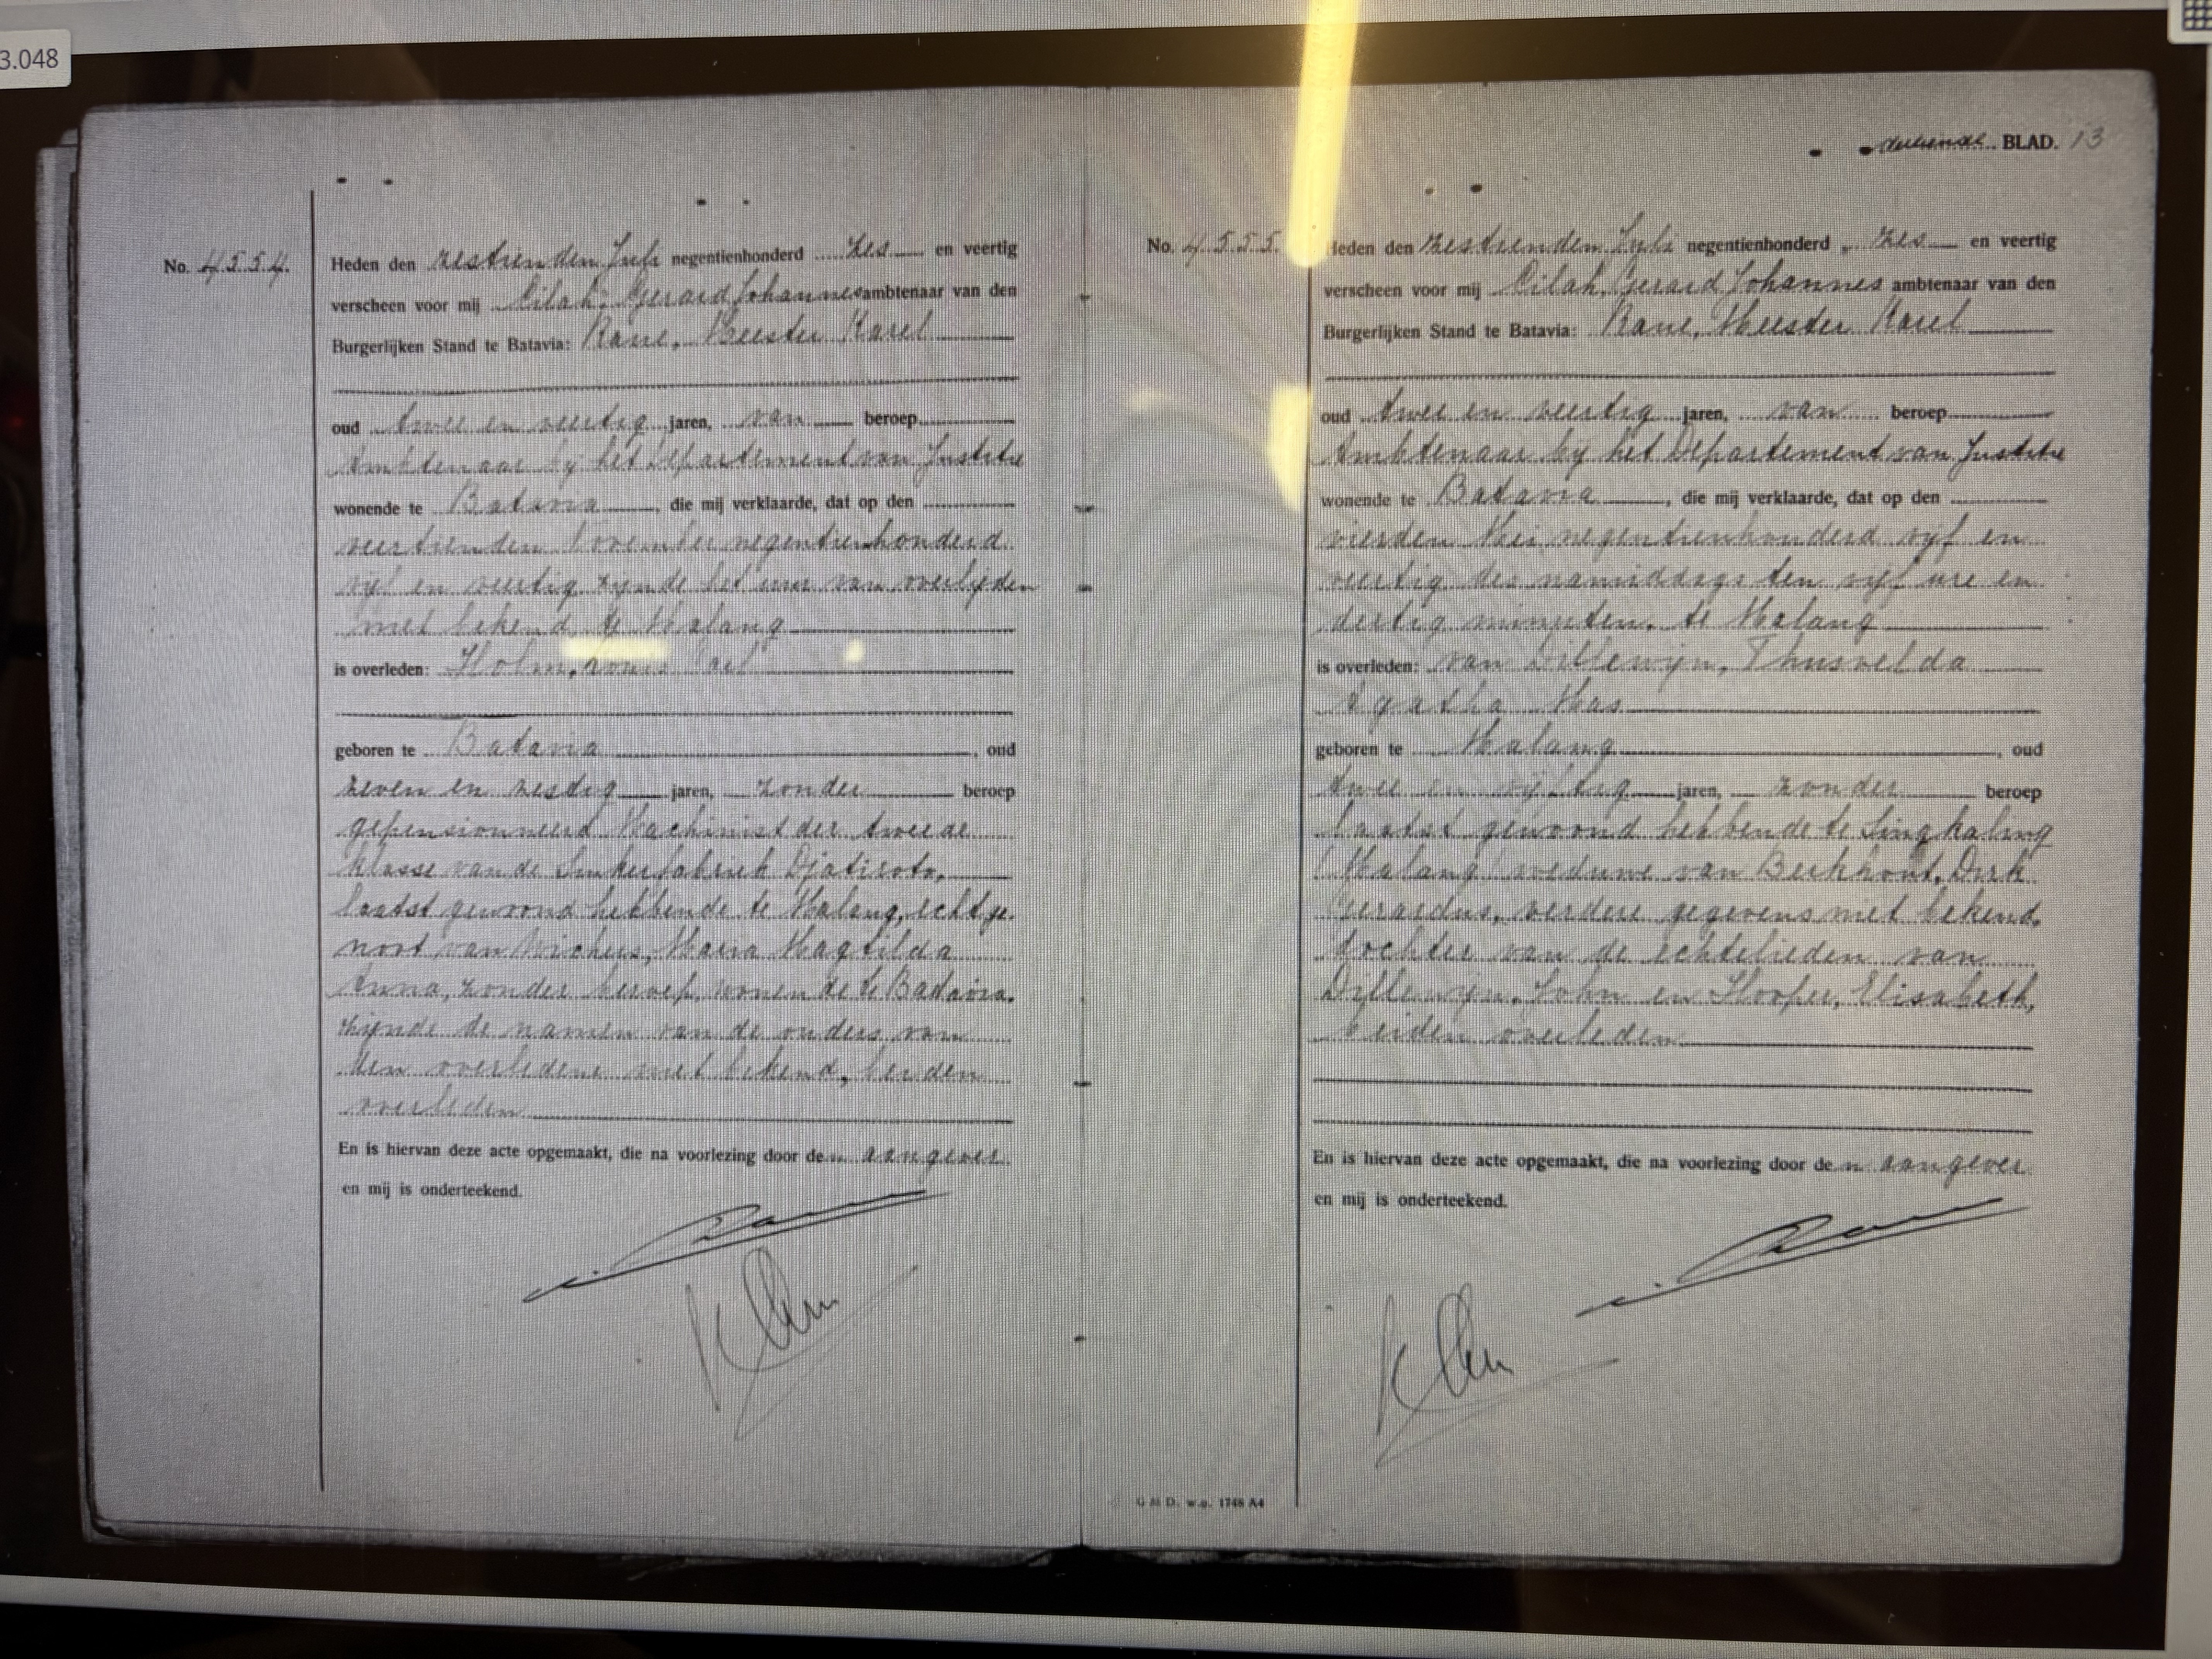 3.048
dertiende BLAD. 13
No. 4554.
Heden den zestienden Juli negentienhonderd zes en veertig
verscheen voor mij Pilah, Gerard Johannes ambtenaar van den
Burgerlijken Stand te Batavia: Rane, Meester Karel
oud twee en veertig jaren, van beroep
Ambtenaar bij het Departement van Justitie
wonende te Batavia, die mij verklaarde, dat op den
veertienden November negentienhonderd
vijf en veertig zijnde het uur van overlijden
niet bekend, te Malang
is overleden: Holm, Louis
geboren te Batavia, oud
zeven en zestig jaren, zonder beroep
gepensionneerd Machinist der tweede
klasse van de Suikerfabriek Djatiroto,
laatst gewoond hebbende te Malang, echtge-
noot van Maria Magtilda
Anna, zonder beroep, wonende te Batavia.
zijnde de namen van de ouders van
den overledene niet bekend, beiden
overleden
En is hiervan deze acte opgemaakt, die na voorlezing door den aangever
en mij is onderteekend.
No. 4555.
Heden den zestienden Juli negentienhonderd zes en veertig
verscheen voor mij Pilah, Gerard Johannes ambtenaar van den
Burgerlijken Stand te Batavia: Rane, Meester Karel
oud twee en veertig jaren, van beroep
Ambtenaar bij het Departement van Justitie
wonende te Batavia, die mij verklaarde, dat op den
vierden Mei negentienhonderd vijf en
veertig des namiddags ten vijf ure en
dertig minuten, te Malang
is overleden: van Dillewijn, Thusnelda
Agatha Mas
geboren te Malang, oud
twee en vijftig jaren, zonder beroep
laatst gewoond hebbende te Lingkaling
(Malang) weduwe van Berkhout, Dirk
Gerardus, verdere gegevens niet bekend,
dochter van de echtelieden van
Dillewijn, John en Hooper, Elisabeth,
beiden overleden
En is hiervan deze acte opgemaakt, die na voorlezing door den aangever
en mij is onderteekend.
G M D. w.o. 1748 A4